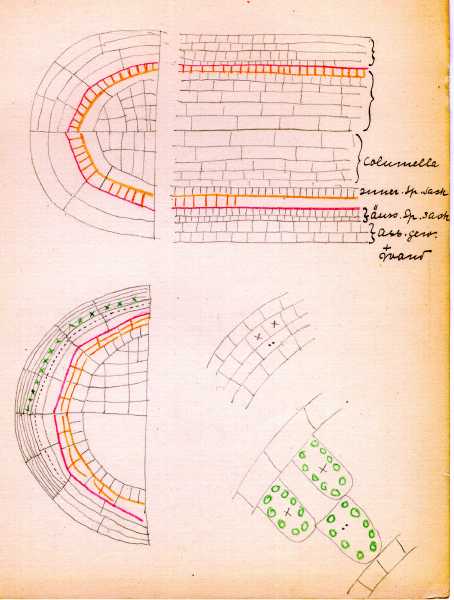 Columella
inner. Sp. sack
äuss. Sp. sack
Ass. gew.
+
wand